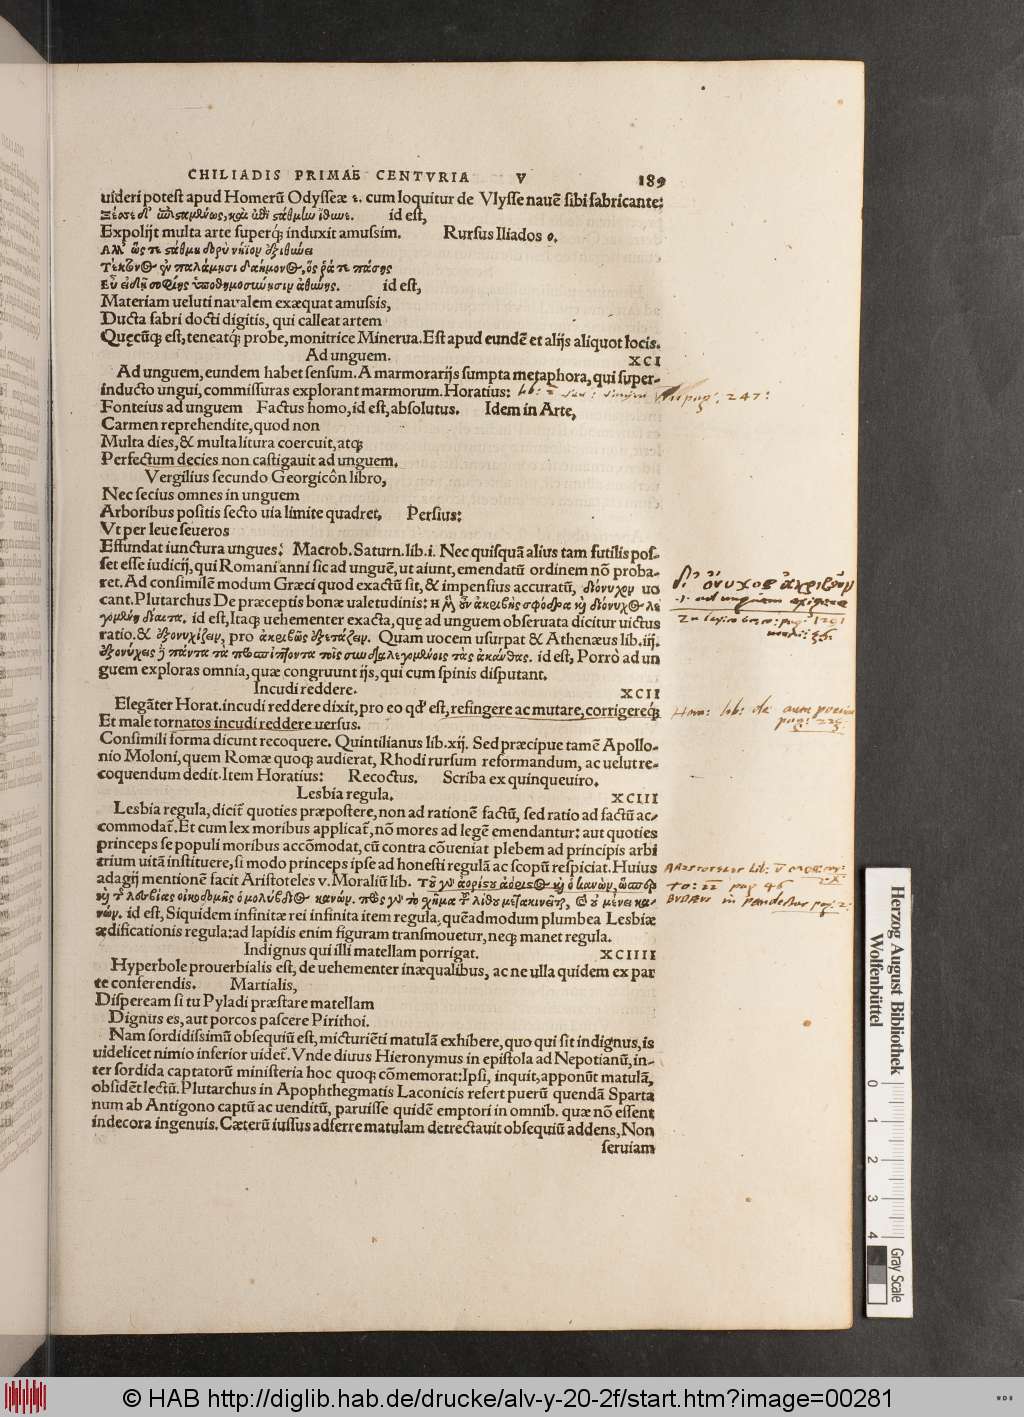 CHILIADIS PRIMAE CENTVRIA V 189
uideri potest apud Homerũ Odysseæ ε. cum loquitur de Vlysse nauẽ sibi fabricante:
id est,
Expolijt multa arte superq́; induxit amussim. Rursus Iliados ο.
Ἀλλ' ὥς τε στάθμη δόρυ νήϊον ἐξιθύνει
Τέκτονος ἐν παλάμῃσι δαήμονος, ὅς ῥά τε πάσης
Εὖ εἰδῇ σοφίης ὑποθημοσύνῃσιν ἀθήνης. id est,
Materiam ueluti naualem exæquat amussis,
Ducta fabri docti digitis, qui calleat artem
Quęcũq; est, teneatq́; probe, monitrice Minerua. Est apud eundẽ et alijs aliquot locis.
Ad unguem. XCI
Ad unguem, eundem habet sensum. A marmorarijs sumpta metaphora, qui super-
inducto ungui, commissuras explorant marmorum. Horatius:
247:
Fonteius ad unguem Factus homo, id est, absolutus. Idem in Arte,
Carmen reprehendite, quod non
Multa dies, & multa litura coercuit, atq;
Perfectum decies non castigauit ad unguem.
Vergilius secundo Georgicôn libro,
Nec secius omnes in unguem
Arboribus positis secto uia limite quadret, Persius:
Vt per leue seueros
Effundat iunctura ungues: Macrob. Saturn. lib. i. Nec quisquã alius tam futilis pos-
set esse iudicij, qui Romani anni sic ad unguẽ, ut aiunt, emendatũ ordinem nõ proba-
ret. Ad consimilẽ modum Græci quod exactũ sit, & impensius accuratũ, διόνυχον uo
cant. Plutarchus De præceptis bonæ ualetudinis: ἡ μὲν οὖν ἀκριβὴς σφόδρα καὶ διόνυχος λε
γομένη δίαιτα. id est, Itaq; uehementer exacta, quę ad unguem obseruata dicitur uictus
ratio. & ἐξονυχίζειν, pro ἀκριβῶς ἐξετάζειν. Quam uocem usurpat & Athenæus lib. iij.
ἐξονύχεις γὰρ πάντα τὰ προσπίπτοντα τοῖς συνδιαλεγομένοις τὰς ἀκάνθας. id est, Porrò ad un
guem exploras omnia, quæ congruunt ijs, qui cum spinis disputant.
ad unguem exigere
Incudi reddere. XCII
Elegãter Horat. incudi reddere dixit, pro eo qđ est, refingere ac mutare, corrigereq́;
Et male tornatos incudi reddere uersus.
Hora: lib: de arte poetica
Consimili forma dicunt recoquere. Quintilianus lib. xij. Sed præcipue tamẽ Apollo-
nio Moloni, quem Romæ quoq; audierat, Rhodi rursum reformandum, ac uelut re-
coquendum dedit. Item Horatius: Recoctus. Scriba ex quinqueuiro.
Lesbia regula. XCIII
Lesbia regula, dicit̃ quoties præpostere, non ad rationẽ factũ, sed ratio ad factũ ac-
commodat̃. Et cum lex moribus applicat̃, nõ mores ad legẽ emendantur: aut quoties
princeps se populi moribus accõmodat, cũ contra cõueniat plebem ad principis arbi
trium uitã instituere, si modo princeps ipse ad honesti regulã ac scopũ respiciat. Huius
adagij mentionẽ facit Aristoteles v. Moraliũ lib. Τοῦ γὰρ ἀορίστου ἀόριστος καὶ ὁ κανών, ὥσπερ
καὶ τῆς λεσβίας οἰκοδομῆς ὁ μολύβδινος κανών. πρὸς γὰρ τὸ σχῆμα τοῦ λίθου μετακινεῖται, καὶ οὐ μένει κα-
νών. id est, Siquidem infinitæ rei infinita item regula, quẽadmodum plumbea Lesbiæ
ædificationis regula: ad lapidis enim figuram transmouetur, neq; manet regula.
pag 46
Budæus in pandectas pag. 2:
Indignus qui illi matellam porrigat. XCIIII
Hyperbole prouerbialis est, de uehementer inæqualibus, ac ne ulla quidem ex par
te conferendis. Martialis,
Dispeream si tu Pyladi præstare matellam
Dignus es, aut porcos pascere Pirithoi.
Nam sordidissimũ obsequiũ est, micturiẽti matulã exhibere, quo qui sit indignus, is
uidelicet nimio inferior uidet̃. Vnde diuus Hieronymus in epistola ad Nepotianũ, in-
ter sordida captatorũ ministeria hoc quoq; cõmemorat: Ipsi, inquit, apponũt matulã,
obsidẽt lectũ. Plutarchus in Apophthegmatis Laconicis refert puerũ quendã Sparta
num ab Antigono captũ ac uenditũ, paruisse quidẽ emptori in omnib. quæ nõ essent
indecora ingenuis. Cæterũ iussus adferre matulam detrectauit obsequiũ addens, Non
seruiam
Herzog August Bibliothek
Wolfenbüttel
0 1 2 3 4
Gray Scale
© HAB http://diglib.hab.de/drucke/alv-y-20-2f/start.htm?image=00281